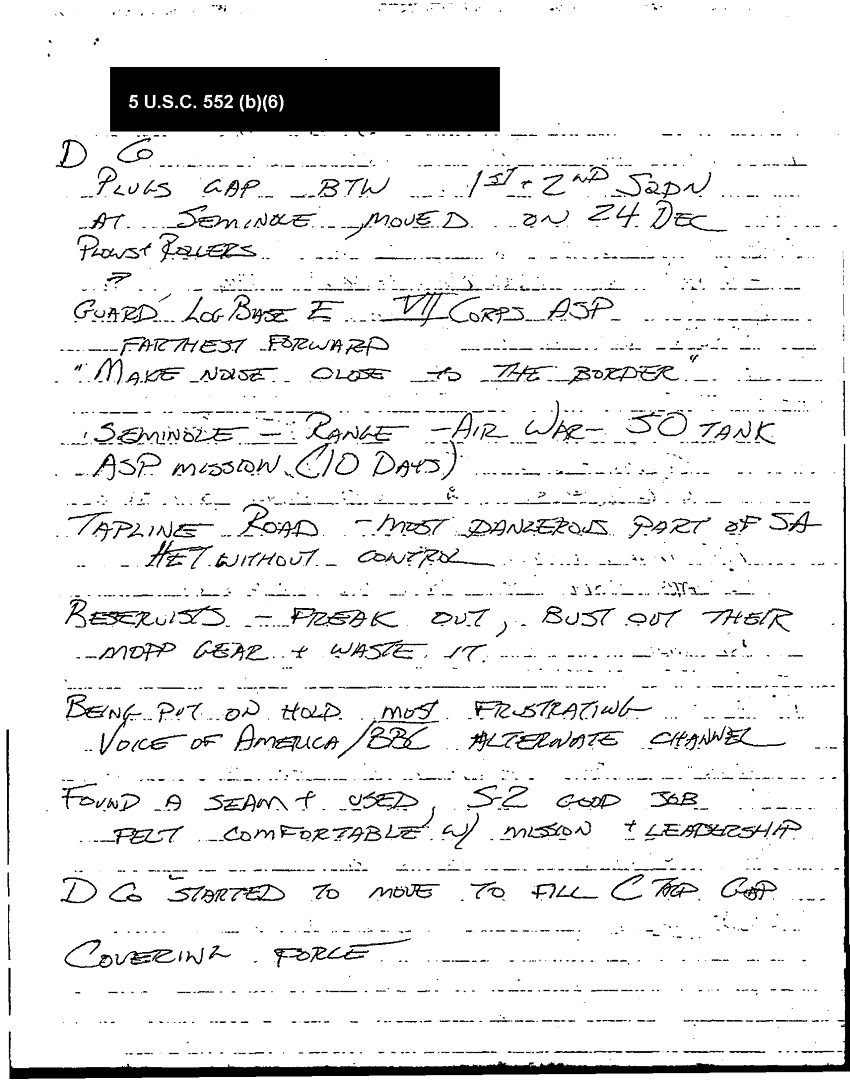 5 U.S.C. 552 (b)(6)
D Co
PLUGS GAP BTW 1ST + 2ND SQDN
AT SEMINOLE, MOVED ON 24 DEC
PLOWS + ROLLERS
GUARD LOG BASE E VII CORPS ASP
FARTHEST FORWARD
"MAKE NOISE CLOSE TO THE BORDER"
SEMINOLE - RANGE - AIR WAR - 50 TANK
ASP MISSION (10 DAYS)
TAPLINE ROAD - MOST DANGEROUS PART OF SA
HET WITHOUT CONTROL
RESERVISTS - FREAK OUT, BUST OUT THEIR
MOPP GEAR + WASTE IT.
BEING PUT ON HOLD MOST FRUSTRATING
VOICE OF AMERICA/BBC ALTERNATE CHANNEL
FOUND A SEAM + USED, S-2 GOOD JOB
FELT COMFORTABLE W/ MISSION + LEADERSHIP
D Co STARTED TO MOVE TO FILL C TRP GAP
COVERING FORCE